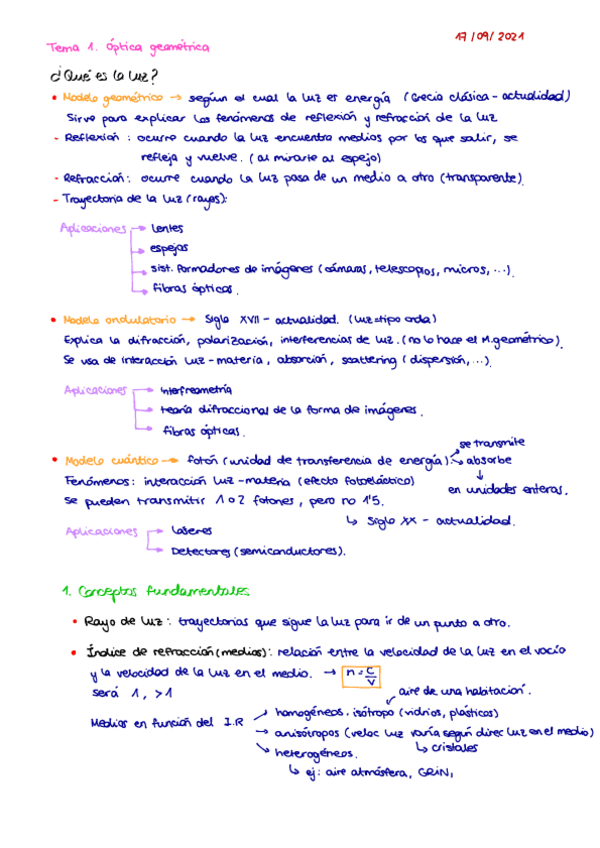 17/09/2021
Tema 1. Óptica geométrica
¿Qué es la luz?
• Modelo geométrico → según el cual la luz es energía (Grecia clásica - actualidad)
Sirve para explicar los fenómenos de reflexión y refracción de la luz
- Reflexión : ocurre cuando la luz encuentra medios por los que salir, se
refleja y vuelve. (al mirarte al espejo)
- Refracción: ocurre cuando la luz pasa de un medio a otro (transparente).
- Trayectoria de la luz (rayos):
Aplicaciones → lentes
→ espejos
→ sist. formadores de imágenes (cámaras, telescopios, micros, ...).
→ fibras ópticas.
• Modelo ondulatorio → Siglo XVII - actualidad. (luz = tipo onda)
Explica la difracción, polarización, interferencias de luz. (no lo hace el M. geométrico).
Se usa de interacción luz-materia, absorción, scattering (dispersión, ...).
Aplicaciones → Interfreometría
→ teoría difraccional de la forma de imágenes.
→ fibras ópticas.
• Modelo cuántico → fotón (unidad de transferencia de energía). → se transmite
→ absorbe
Fenómenos: interacción luz-materia (efecto fotoeláctico) ↓
en unidades enteras.
Se pueden transmitir 1 o 2 fotones, pero no 1'5.
↳ Siglo XX - actualidad.
Aplicaciones → Láseres
→ Detectores (semiconductores).
1. Conceptos fundamentales
• Rayo de luz: trayectorias que sigue la luz para ir de un punto a otro.
• Índice de refracción (medios): relación entre la velocidad de la luz en el vacío
y la velocidad de la luz en el medio. → n = c/v
será 1, >1
aire de una habitación.
Medios en función del I.R → homogéneos. isótropo (vidrios, plásticos)
→ anisótropos (veloc luz varía según direc luz en el medio)
↳ cristales
→ heterogéneos.
↳ ej: aire atmósfera, GRIN,